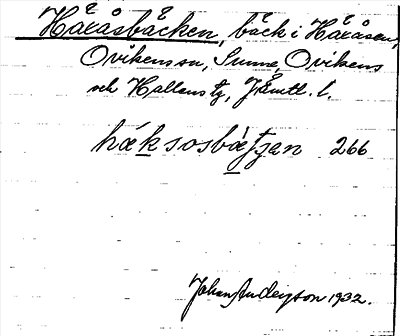 Häxåsbäcken, bäck i Häxåsen,
Ovikens sn, Sunne, Ovikens
och Hallens tg, Jämtl. l.
häksosbäʃʒan 266
Johan Anderson 1932.